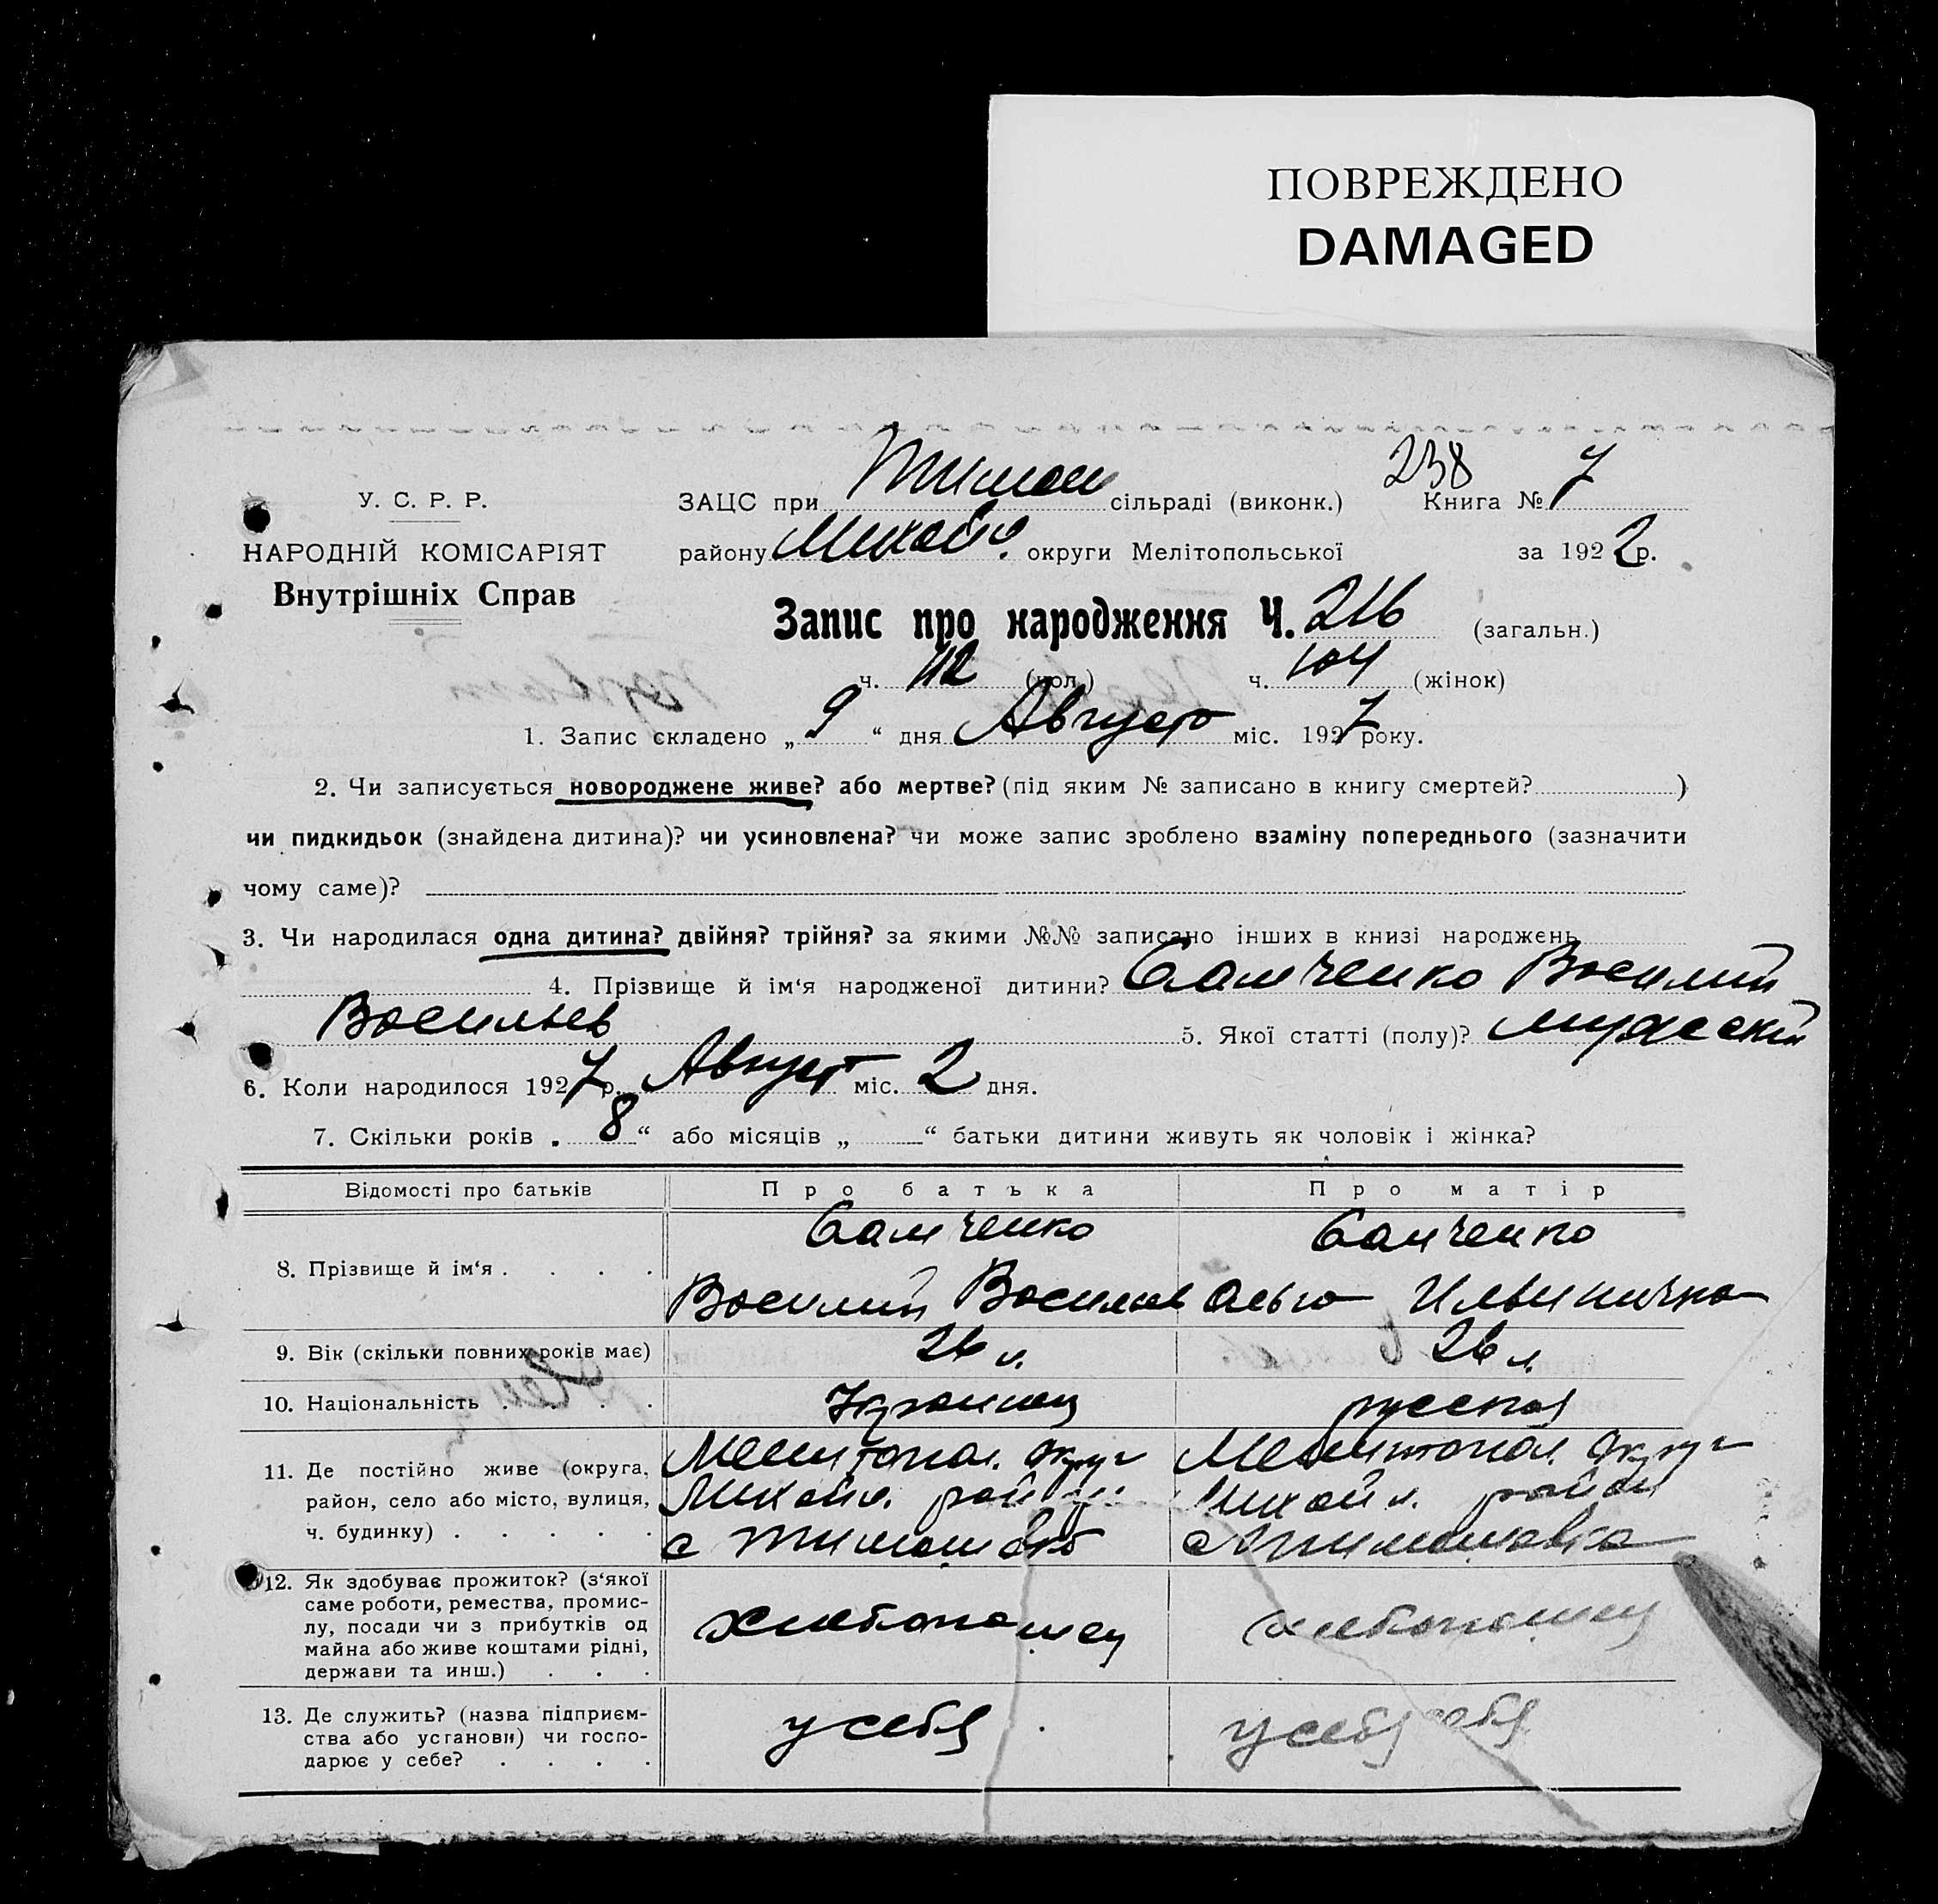 ПОВРЕЖДЕНО
DAMAGED
238
У. С. Р. Р.
ЗАЦС при Тимош сільраді (виконк.) Книга № 7
НАРОДНІЙ КОМІСАРІЯТ
району Михайл. округи Мелітопольської за 1922 р.
Внутрішніх Справ
Запис про народження Ч. 216 (загальн.)
ч. 112 (чол.) ч. 104 (жінок)
1. Запис складено „ 9 “ дня Август міс. 1927 року.
2. Чи записується новороджене живе? або мертве? (під яким № записано в книгу смертей? )
чи пидкидьок (знайдена дитина)? чи усиновлена? чи може запис зроблено взаміну попереднього (зазначити
чому саме)?
3. Чи народилася одна дитина? двійня? трійня? за якими №№ записано інших в книзі народжень
4. Прізвище й ім‘я народженої дитини? Самченко Василий
Васильев 5. Якої статті (полу)? мужский
6. Коли народилося 1927 р. Август міс. 2 дня.
7. Скільки років „ 8 “ або місяців „ — “ батьки дитини живуть як чоловік і жінка?
Відомості про батьків Про батька Про матір
8. Прізвище й ім‘я . . . .
Самченко
Василий Васильев
Самченко
Ольга Ильинична
9. Вік (скільки повних років має) 26 л. 26 л.
10. Національність . . . . Украинец русская
11. Де постійно живе (округа,
район, село або місто, вулиця,
ч. будинку) . . . . .
Мелитопол. округ
Михайл. район
с Тимошовка
Мелитопол. округ
Михайл. район
с Тимошовка
12. Як здобуває прожиток? (з‘якої
саме роботи, ремества, промис-
лу, посади чи з прибутків од
майна або живе коштами рідні,
держави та инш.) . . .
хлебопашец
хлебопашец
13. Де служить? (назва підприєм-
ства або установи) чи госпо-
дарює у себе? . . . .
у себя
у себя себя